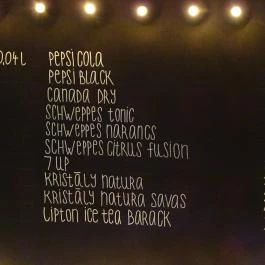 0,04 L PEPSI COLA
PEPSI BLACK
CANADA DRY
SCHWEPPES TONIC
SCHWEPPES NARANCS
SCHWEPPES CITRUS FUSION
7 UP
KRISTÁLY NATURA
KRISTÁLY NATURA SAVAS
LIPTON ICE TEA BARACK